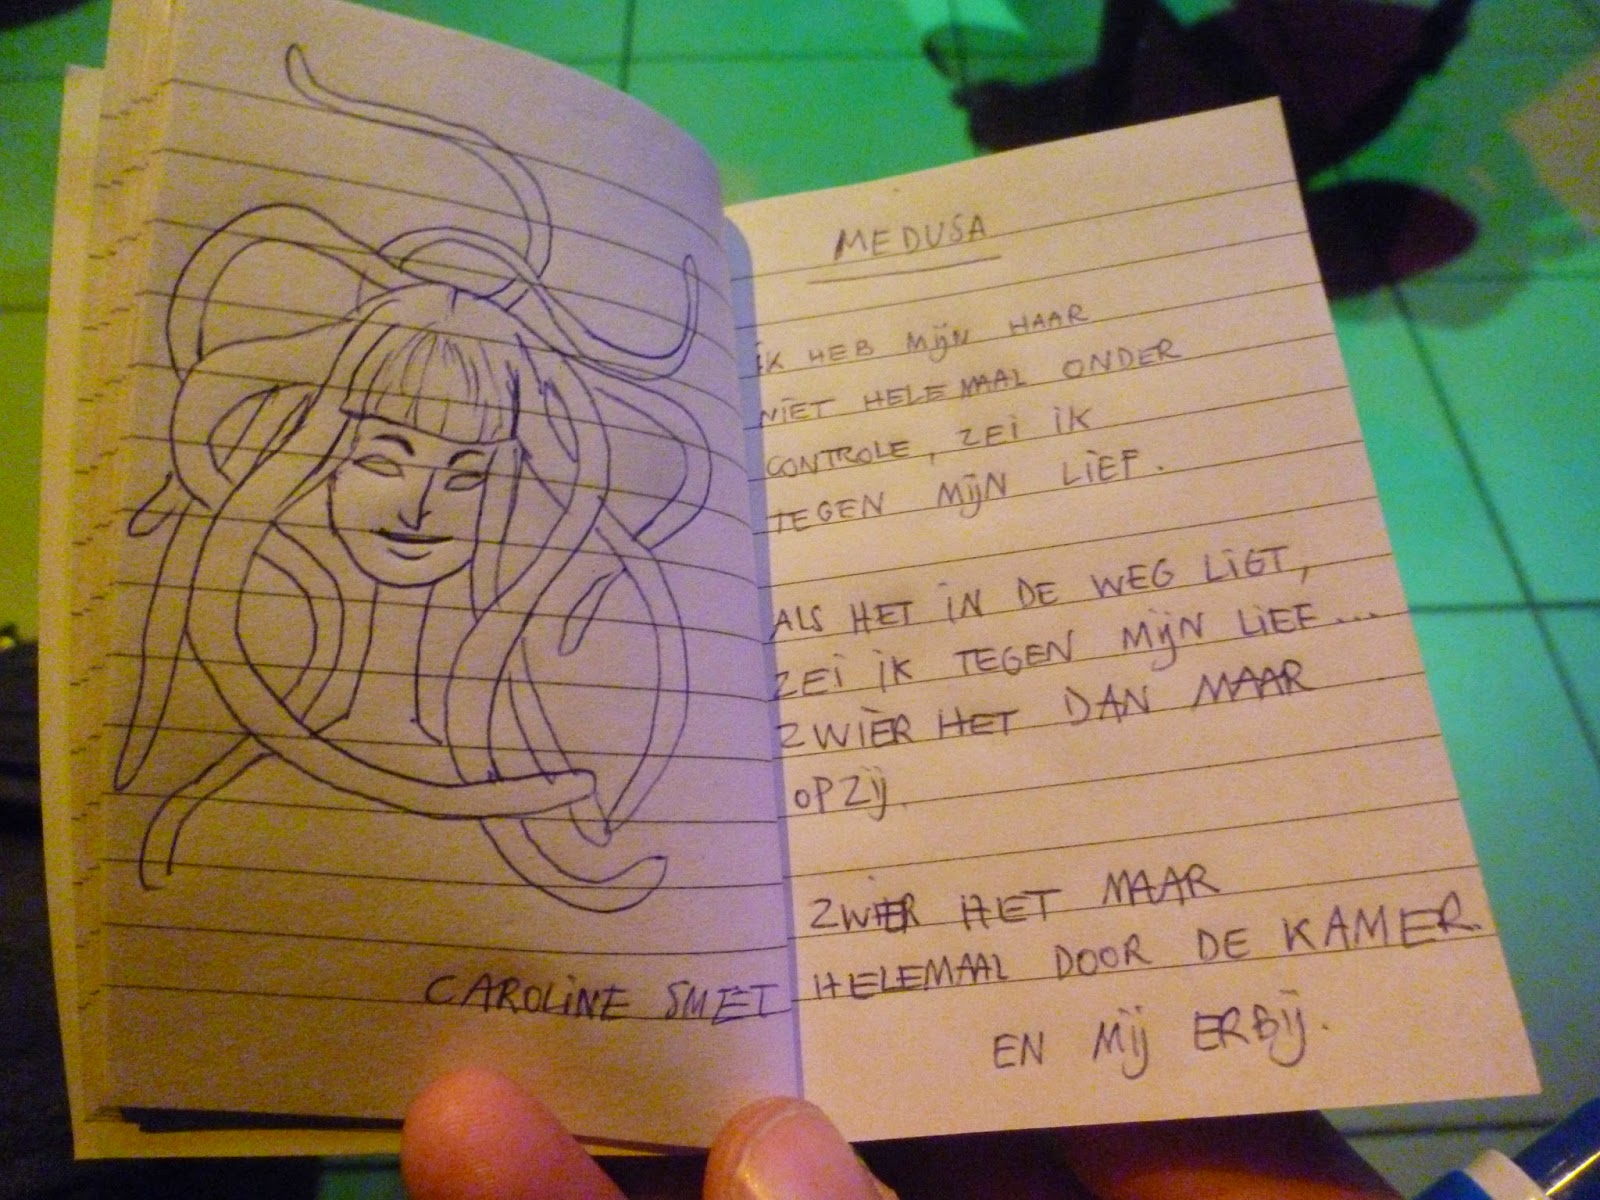 CAROLINE SMET
MEDUSA
IK HEB MIJN HAAR
NIET HELEMAAL ONDER
CONTROLE, ZEI IK
TEGEN MIJN LIEF.
ALS HET IN DE WEG LIGT,
ZEI IK TEGEN MIJN LIEF...
ZWIER HET DAN MAAR
OPZIJ.
ZWIER HET MAAR
HELEMAAL DOOR DE KAMER.
EN MIJ ERBIJ.